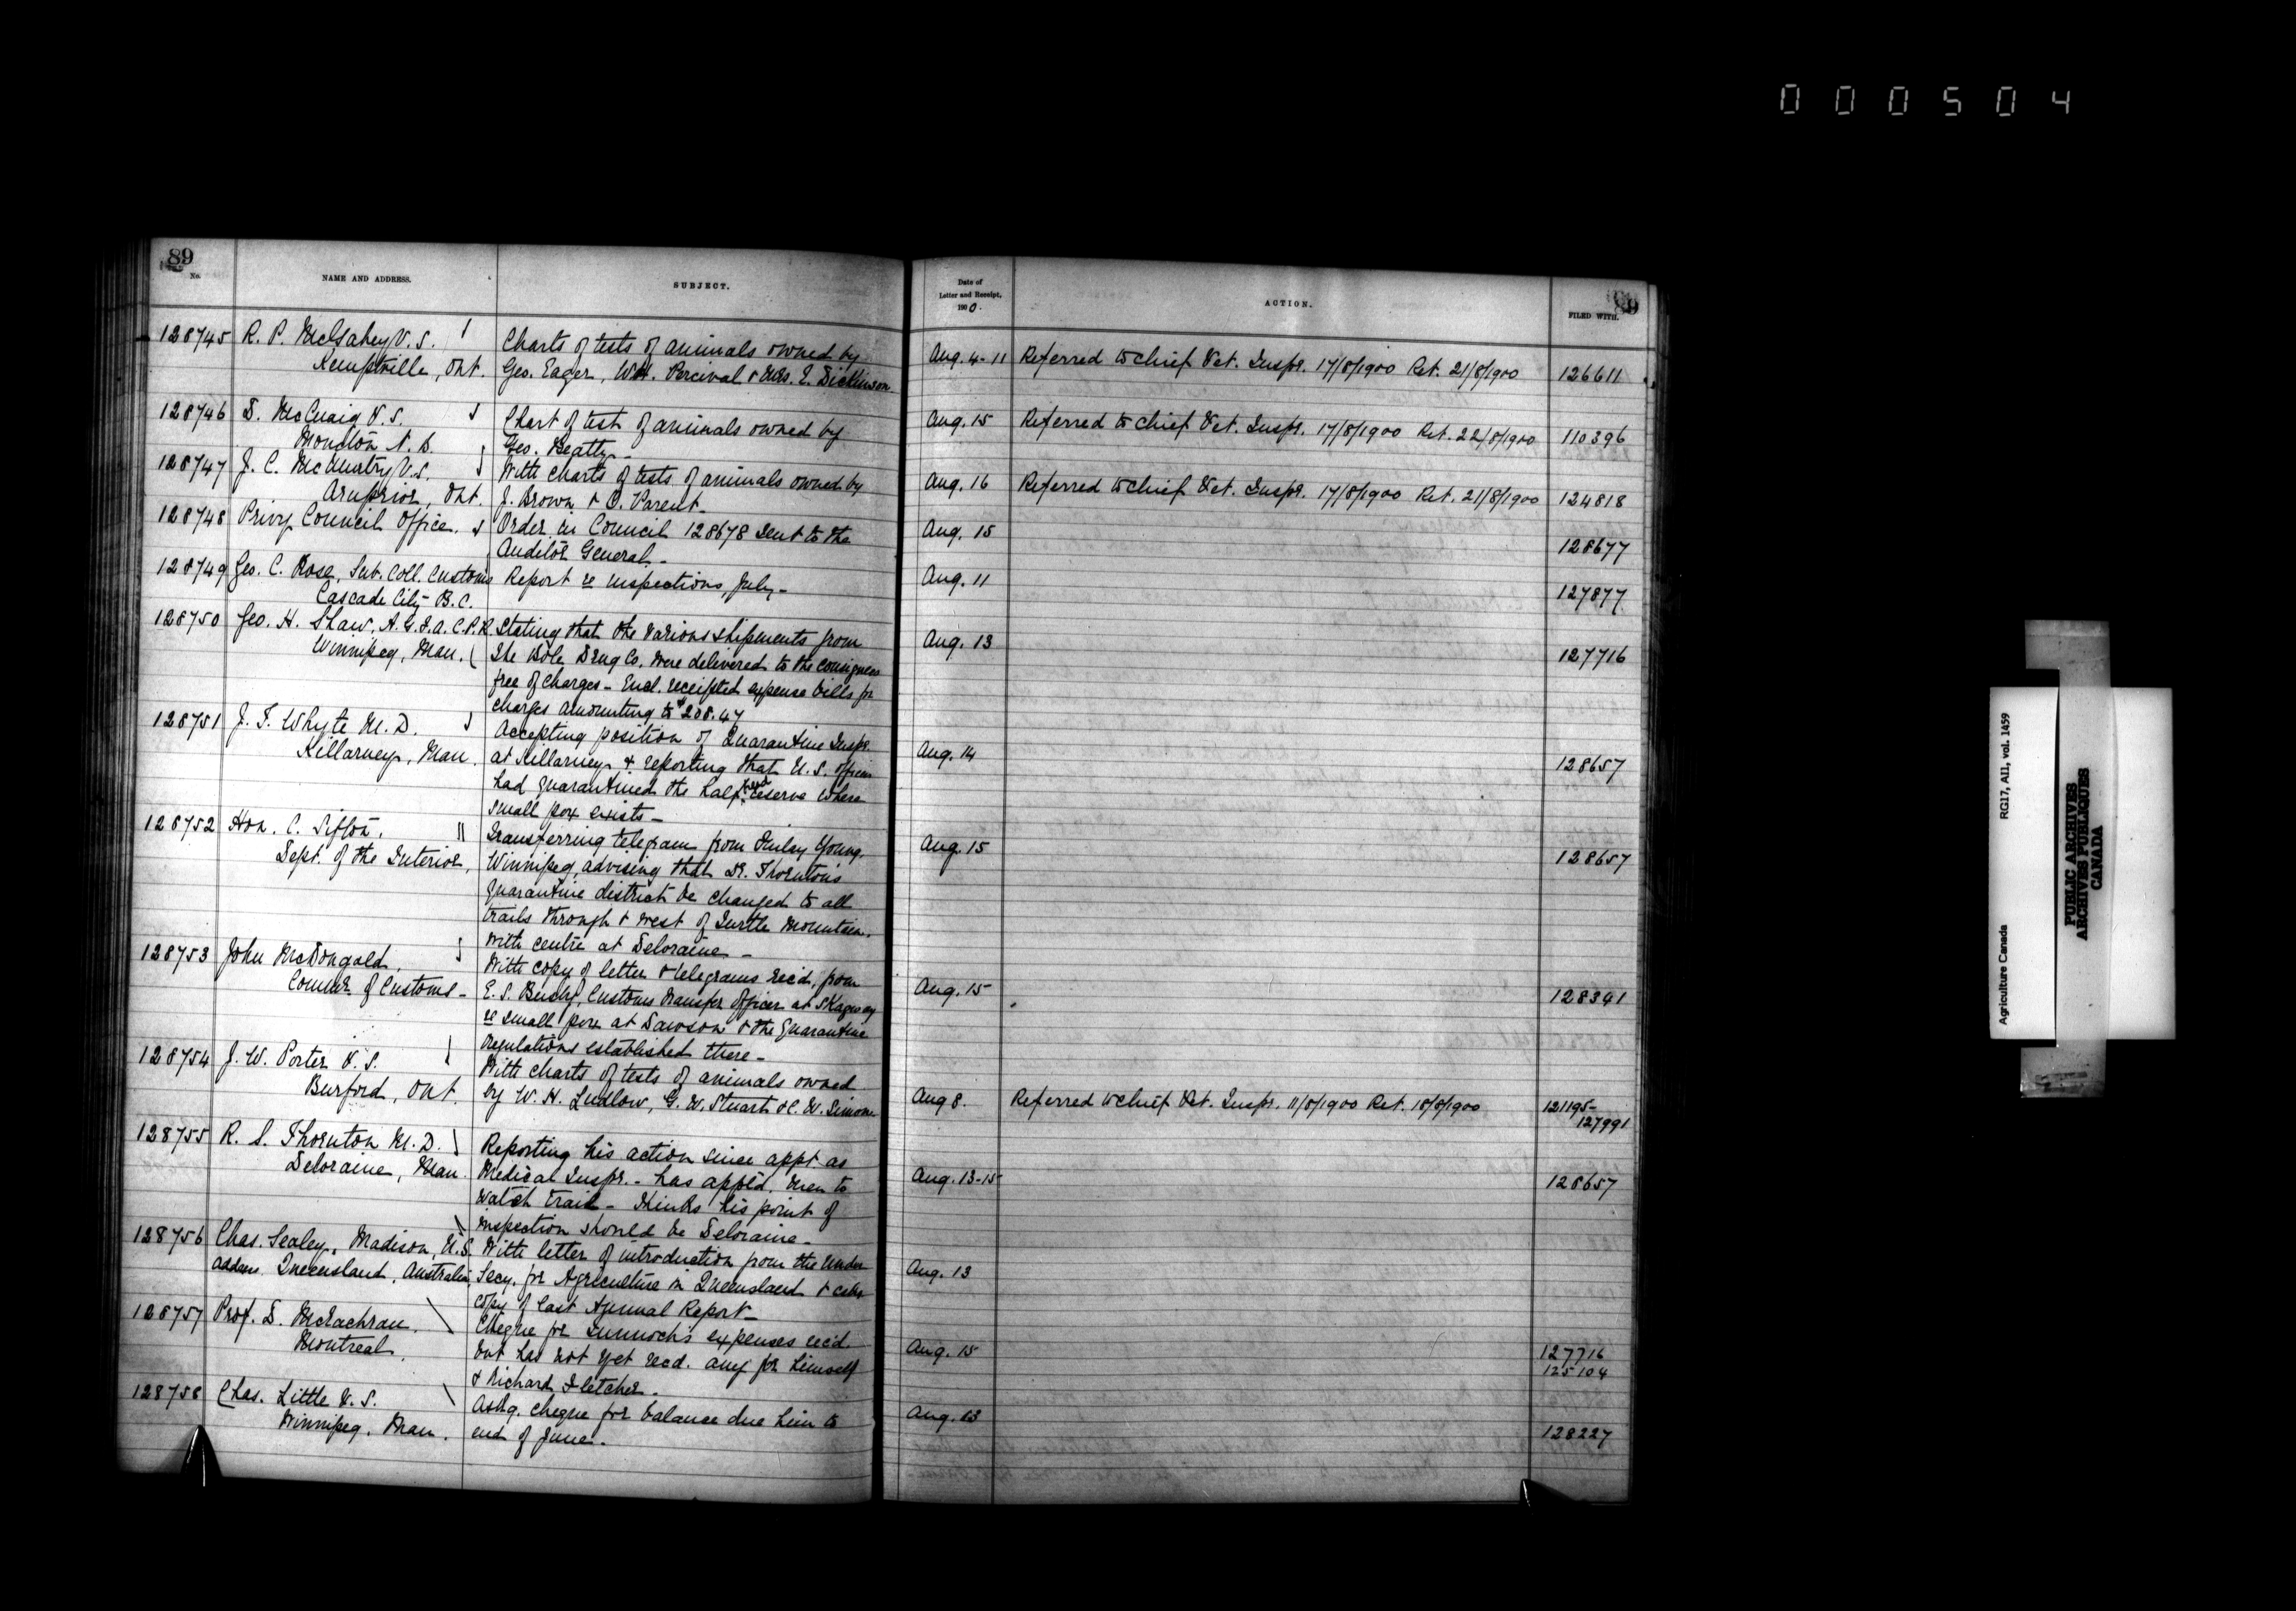 000504
89
No.
NAME AND ADDRESS.
SUBJECT.
128745 R. P. McGahey V. S.
Kemptville, Ont.
Charts of tests of animals owned by
Geo. Eager, W.H. Percival & Mrs. E. Dickinson
128746 D. McCuaig V. S.
Moncton N. B.
Chart of test of animals owned by
Geo. Beatty -
128747 J. C. McMurtry V. S.
Arnprior, Ont.
With charts of tests of animals owned by
J. Brown & O. Parent -
128748 Privy Council Office.
Order in Council 128678 sent to the
Auditor General -
128749 Geo. C. Rose, Sub. Coll. Customs
Cascade City B.C.
Report re inspections, July -
128750 Geo. H. Shaw, A.G.F.A. C.P.R
Winnipeg, Man.
Stating that the various shipments from
The Bole Drug Co. were delivered to the consignees
free of charges - Encl. receipted expense bills for
charges amounting to $208.47
128751 J. F. Whyte M. D.
Killarney, Man.
Accepting position of Quarantine Inspr.
at Killarney & reporting that U. S. officers
had quarantined the half breed reserve where
small pox exists -
128752 Hon. C. Sifton,
Dept. of the Interior,
Transferring telegram from Finlay Young,
Winnipeg, advising that Dr. Thornton's
quarantine district be changed to all
trails through & west of Turtle Mountain.
with centre at Deloraine -
128753 John McDougald,
Commr. of Customs -
With copy of letter & telegrams rec'd, from
E. S. Busby, Customs transfer officer at Skagway
re small pox at Dawson & the quarantine
regulations established there -
128754 J. W. Porter V. S.
Burford, Ont.
With charts of tests of animals owned
by W. H. Ludlow, G. W. Stuart & C. W. Simons
128755 R. S. Thornton M. D.
Deloraine, Man.
Reporting his action since appt. as
Medical Inspr. - has appt'd. men to
watch trail - thinks his point of
inspection should be Deloraine -
128756 Chas. Sealey, Madison, U.S.
address Queensland, Australia,
With letter of introduction from the Under
Secy. for Agriculture in Queensland & asks
copy of last Annual Report -
128757 Prof. D. McEachran,
Montreal
Cheque for expenses rec'd.
but has not yet recd. any for himself
& Richard Fletcher.
128758 Chas. Little V. S.
Winnipeg, Man.
Askg. cheque for balance due him to
end of June.
Date of
Letter and Receipt,
1900.
ACTION.
FILED WITH.
89
Aug. 4-11 Referred to Chief Vet. Inspr. 17/8/1900 Ret. 21/8/1900 126611
Aug. 15 Referred to Chief Vet. Inspr. 17/8/1900 Ret. 22/8/1900 110396
Aug. 16 Referred to Chief Vet. Inspr. 17/8/1900 Ret. 21/8/1900 124818
Aug. 15 128677
Aug. 11 127877
Aug. 13 127716
Aug. 14 128657
Aug. 15 128657
Aug. 15 128341
Aug 8. Referred to Chief Vet. Inspr. 11/8/1900 Ret. 18/8/1900 121195-
127991
Aug. 13-15 128657
Aug. 13
Aug. 15 127716
125104
Aug. 13 128227
Agriculture Canada
RG17, AII, vol. 1459
PUBLIC ARCHIVES
ARCHIVES PUBLIQUES
CANADA